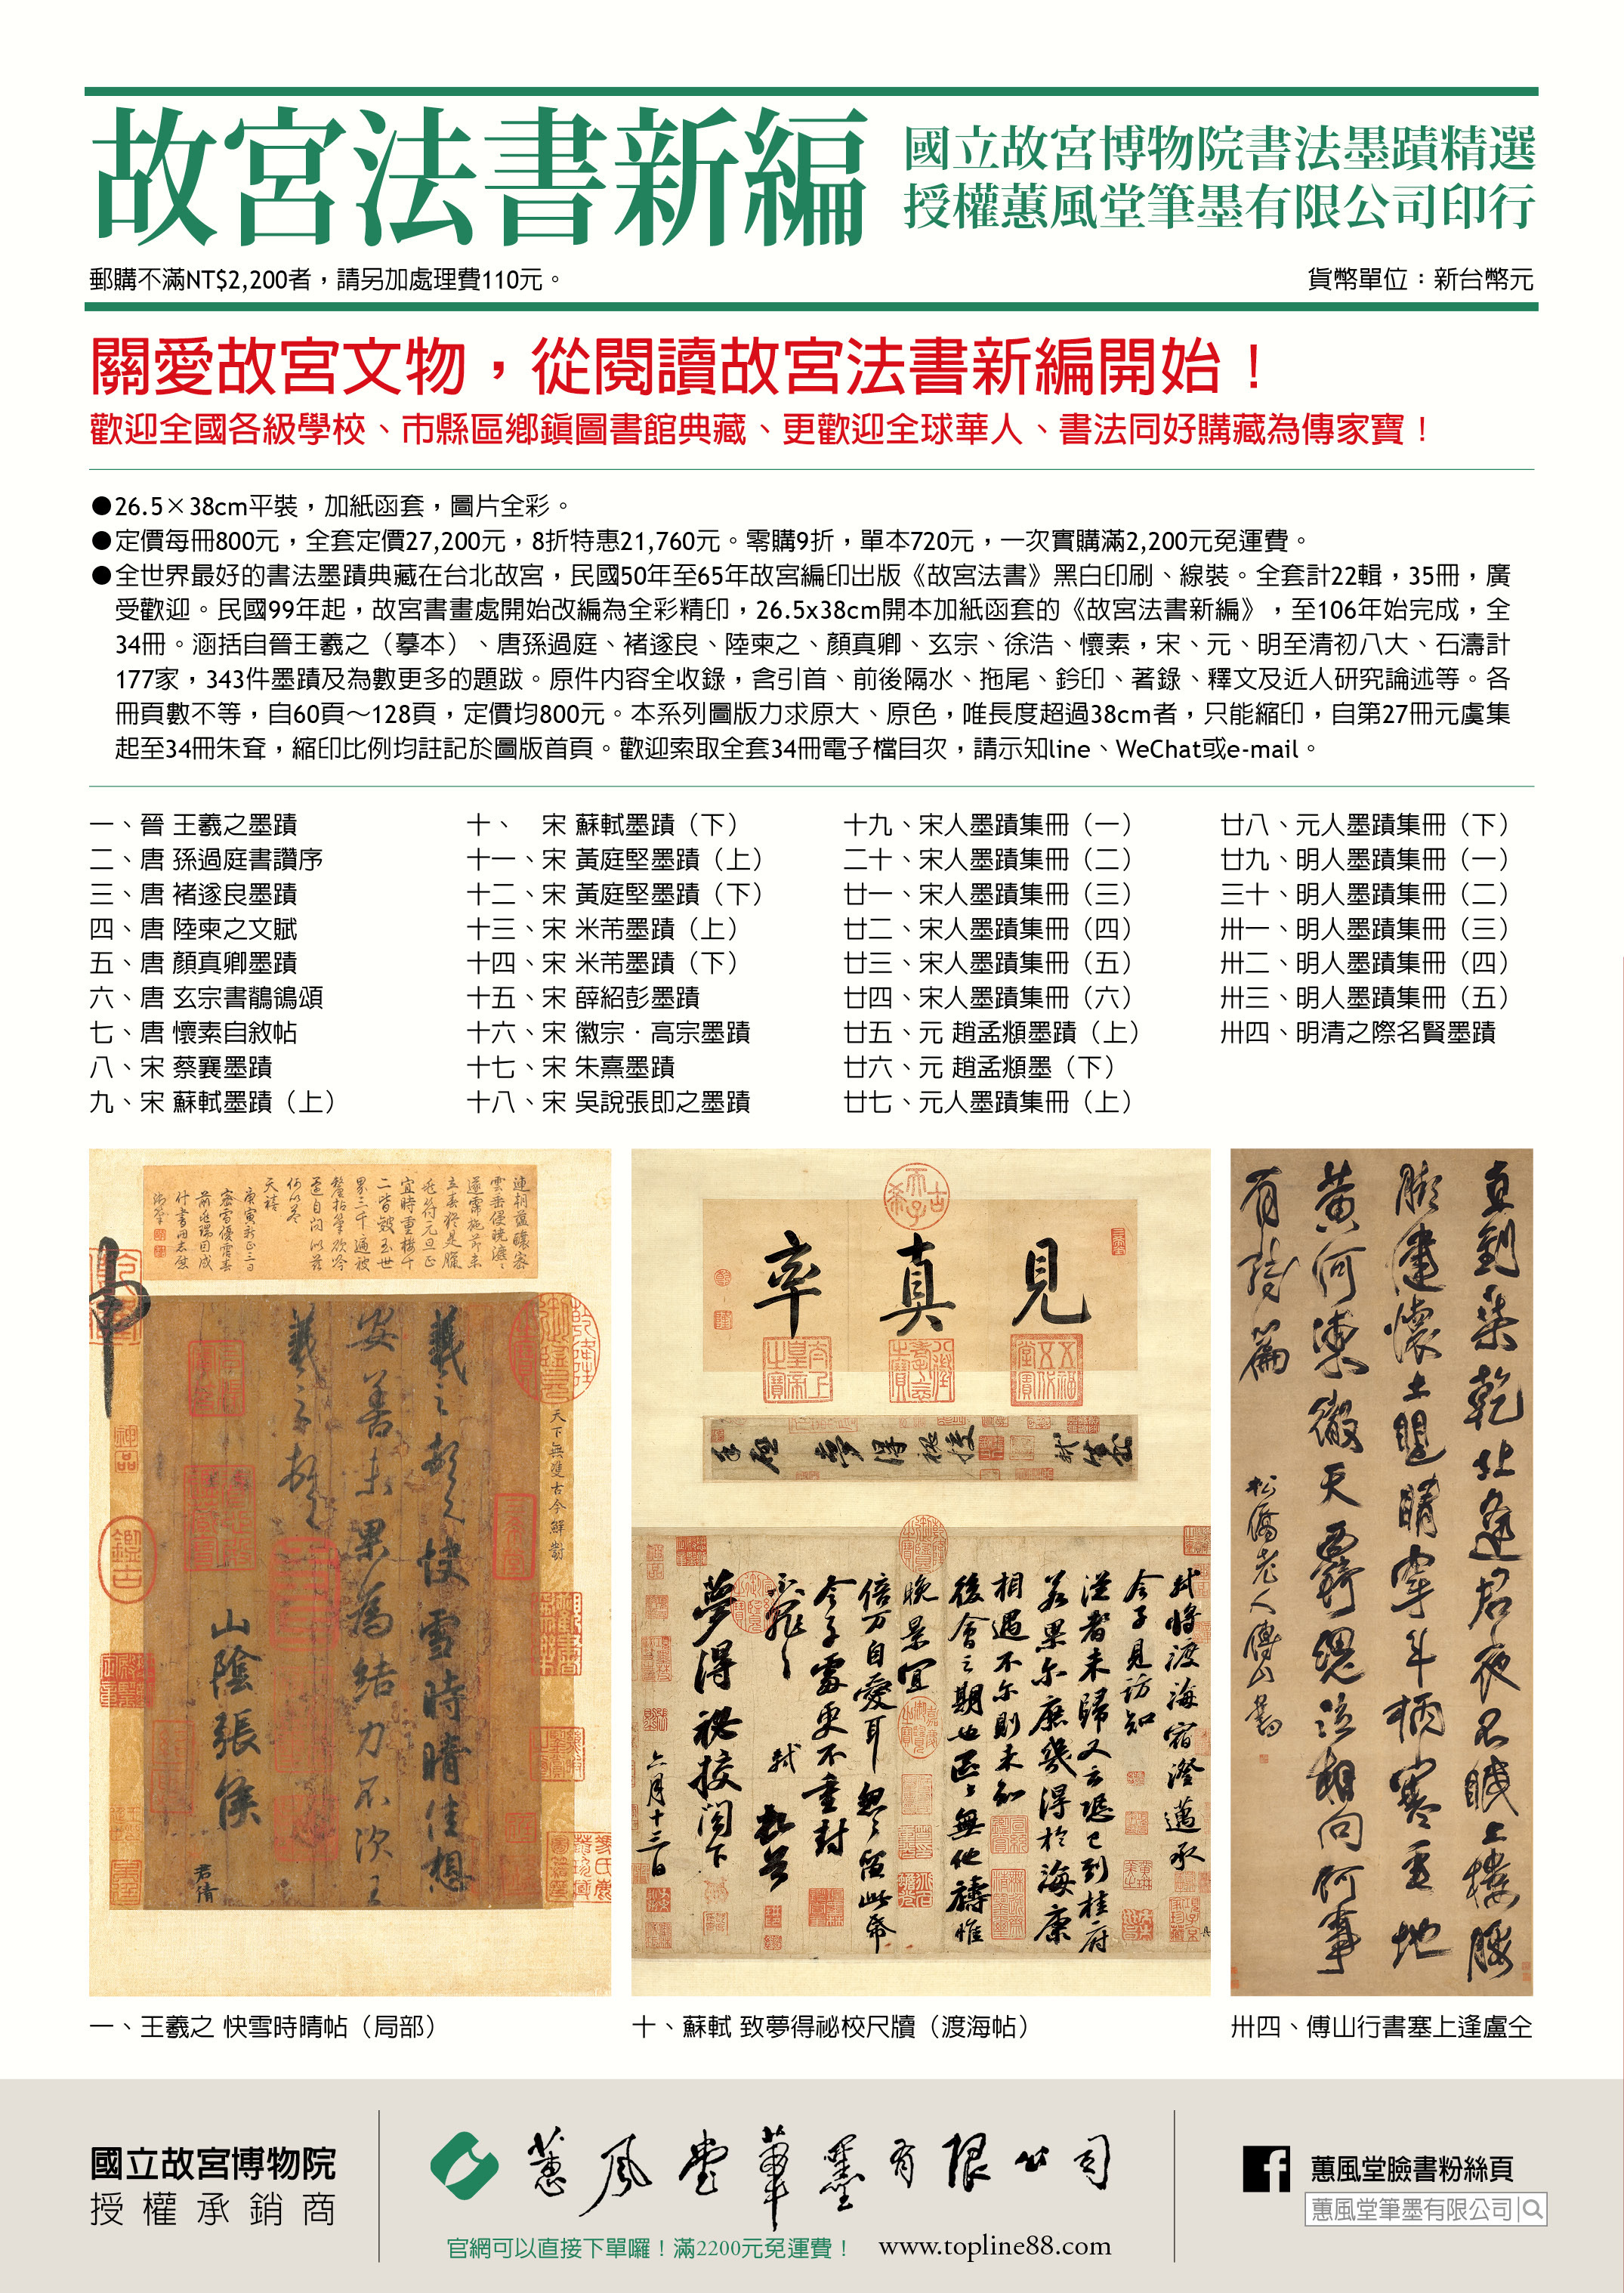 故宮法書新編
國立故宮博物院書法墨蹟精選
授權蕙風堂筆墨有限公司印行
郵購不滿NT$2,200者，請另加處理費110元。
貨幣單位：新台幣元
關愛故宮文物，從閱讀故宮法書新編開始！
歡迎全國各級學校、市縣區鄉鎮圖書館典藏、更歡迎全球華人、書法同好購藏為傳家寶！
●26.5×38cm平裝，加紙函套，圖片全彩。
●定價每冊800元，全套定價27,200元，8折特惠21,760元。零購9折，單本720元，一次實購滿2,200元免運費。
●全世界最好的書法墨蹟典藏在台北故宮，民國50年至65年故宮編印出版《故宮法書》黑白印刷、線裝。全套計22輯，35冊，廣
受歡迎。民國99年起，故宮書畫處開始改編為全彩精印，26.5x38cm開本加紙函套的《故宮法書新編》，至106年始完成，全
34冊。涵括自晉王羲之（摹本）、唐孫過庭、褚遂良、陸柬之、顏真卿、玄宗、徐浩、懷素，宋、元、明至清初八大、石濤計
177家，343件墨蹟及為數更多的題跋。原件內容全收錄，含引首、前後隔水、拖尾、鈐印、著錄、釋文及近人研究論述等。各
冊頁數不等，自60頁～128頁，定價均800元。本系列圖版力求原大、原色，唯長度超過38cm者，只能縮印，自第27冊元虞集
起至34冊朱耷，縮印比例均註記於圖版首頁。歡迎索取全套34冊電子檔目次，請示知line、WeChat或e-mail。
一、晉 王羲之墨蹟
二、唐 孫過庭書譜序
三、唐 褚遂良墨蹟
四、唐 陸柬之文賦
五、唐 顏真卿墨蹟
六、唐 玄宗書鶺鴒頌
七、唐 懷素自敘帖
八、宋 蔡襄墨蹟
九、宋 蘇軾墨蹟（上）
十、 宋 蘇軾墨蹟（下）
十一、宋 黃庭堅墨蹟（上）
十二、宋 黃庭堅墨蹟（下）
十三、宋 米芾墨蹟（上）
十四、宋 米芾墨蹟（下）
十五、宋 薛紹彭墨蹟
十六、宋 徽宗．高宗墨蹟
十七、宋 朱熹墨蹟
十八、宋 吳說張即之墨蹟
十九、宋人墨蹟集冊（一）
二十、宋人墨蹟集冊（二）
廿一、宋人墨蹟集冊（三）
廿二、宋人墨蹟集冊（四）
廿三、宋人墨蹟集冊（五）
廿四、宋人墨蹟集冊（六）
廿五、元 趙孟頫墨蹟（上）
廿六、元 趙孟頫墨（下）
廿七、元人墨蹟集冊（上）
廿八、元人墨蹟集冊（下）
廿九、明人墨蹟集冊（一）
三十、明人墨蹟集冊（二）
卅一、明人墨蹟集冊（三）
卅二、明人墨蹟集冊（四）
卅三、明人墨蹟集冊（五）
卅四、明清之際名賢墨蹟
神
天下無雙古今鮮對
羲之頓首快雪時晴佳想
安善未果為結力不次王
羲之頓首
山陰張侯
君倩
見真率
軾將渡海宿澄邁承
令子見訪知
從者未歸又云恐已到桂府
若果爾庶幾得於海康
相遇不爾則未知
後會之期也區區無他禱惟
晚景宜
倍萬自愛耳忽忽留此帋
令子處更不重封
不罪不罪 軾頓首
夢得祕校閣下
六月十三日
松僑老人傅山書
一、王羲之 快雪時晴帖（局部）
十、蘇軾 致夢得祕校尺牘（渡海帖）
卅四、傅山行書塞上逢盧仝
國立故宮博物院
授權承銷商
蕙風堂筆墨有限公司
官網可以直接下單囉！滿2200元免運費！ www.topline88.com
蕙風堂臉書粉絲頁
蕙風堂筆墨有限公司